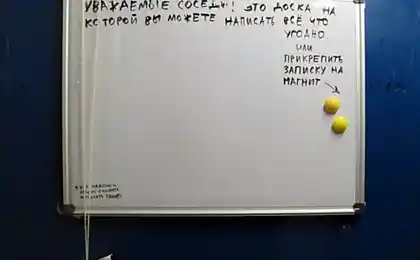 УВАЖАЕМЫЕ СОСЕДИ! ЭТО ДОСКА НА
КОТОРОЙ ВЫ МОЖЕТЕ НАПИСАТЬ ВСЁ ЧТО
УГОДНО
ИЛИ
ПРИКРЕПИТЬ
ЗАПИСКУ НА
МАГНИТ